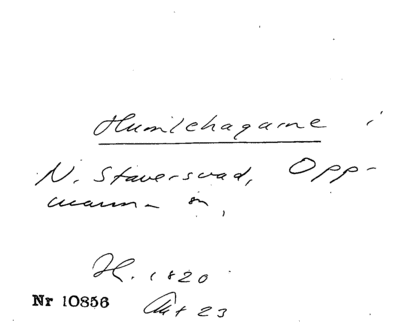 Humlehagarne i
N. Staversvad, Opp-
manna s,
H. 1820
Nr 10856 Akt 23